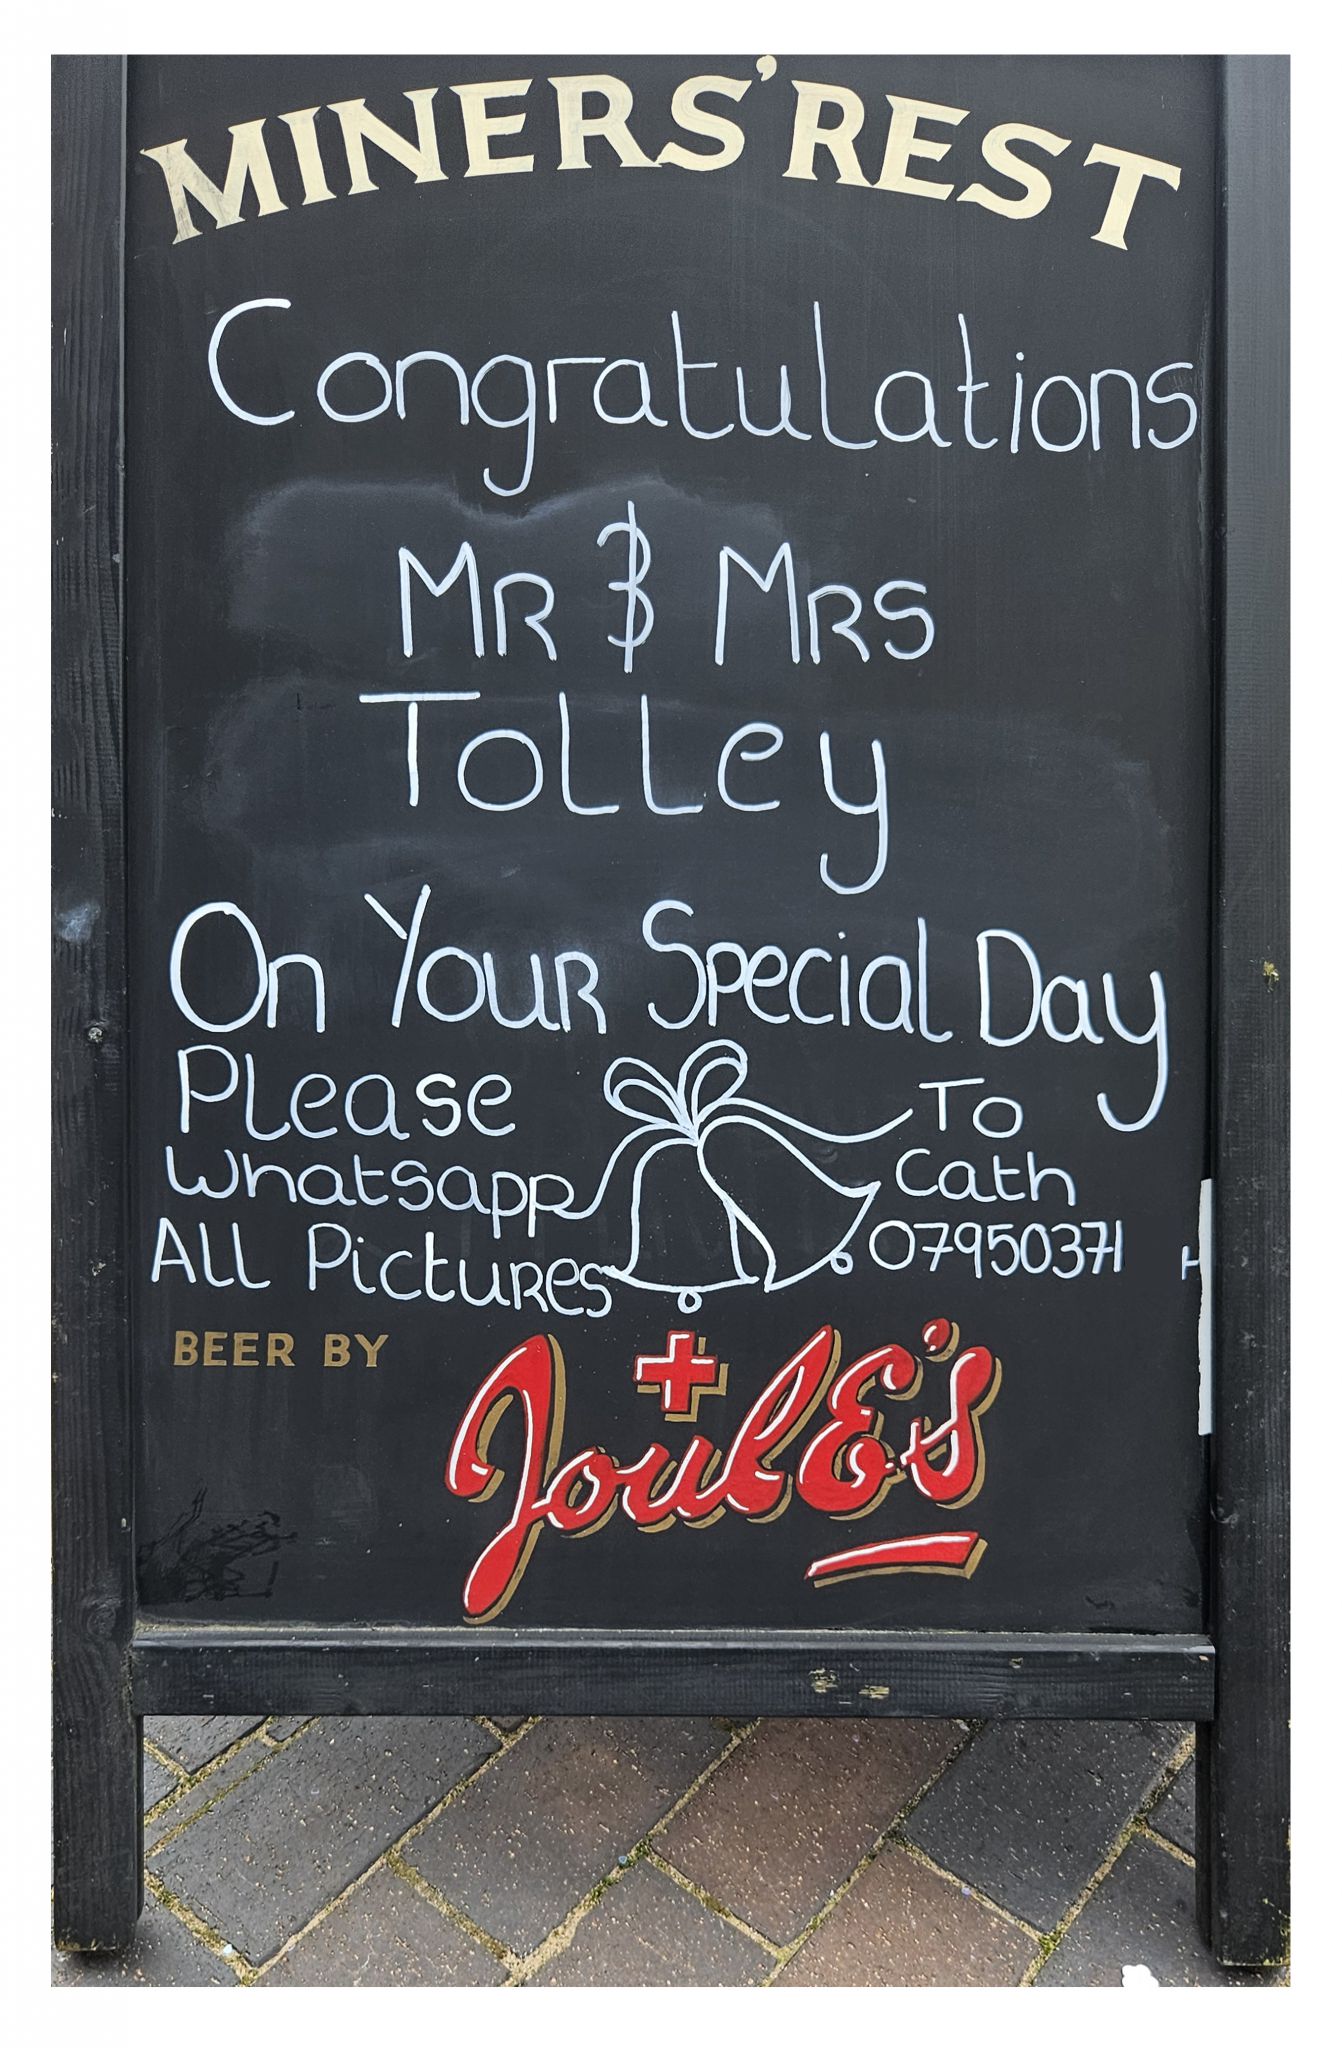 MINERS' REST
Congratulations
MR & MRS
TOLLEY
On Your Special Day
Please
Whatsapp
All Pictures
To
Cath
07950371
BEER BY
JoulE's